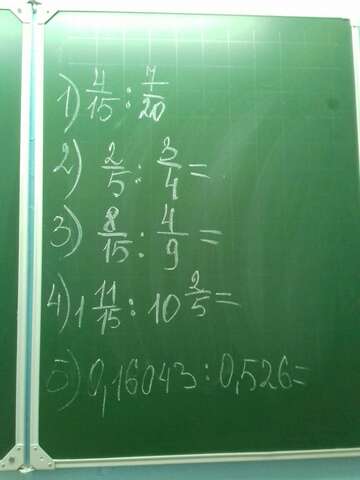 1) 4/15 : 7/20
2) 2/5 : 3/4 =
3) 8/15 : 4/9 =
4) 1 11/15 : 10 2/5 =
5) 0,16043 : 0,526 =